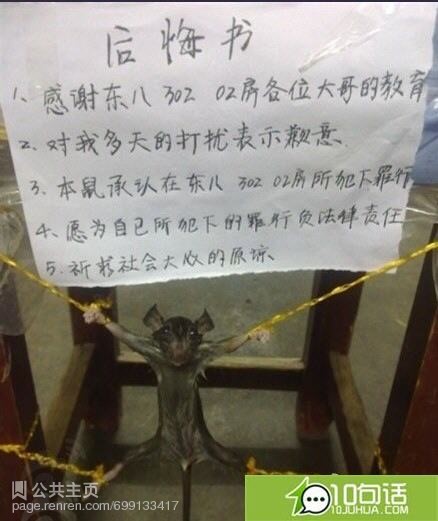 后悔书
1、感谢东八 302 02房各位大哥的教育
2、对我多天的打扰表示歉意.
3、本鼠承认在东八 302 02房所犯下罪行
4、愿为自己所犯下的罪行负法律责任
5、祈求社会大众的原谅.
公共主页
page.renren.com/699133417
10句话
10JUHUA.COM